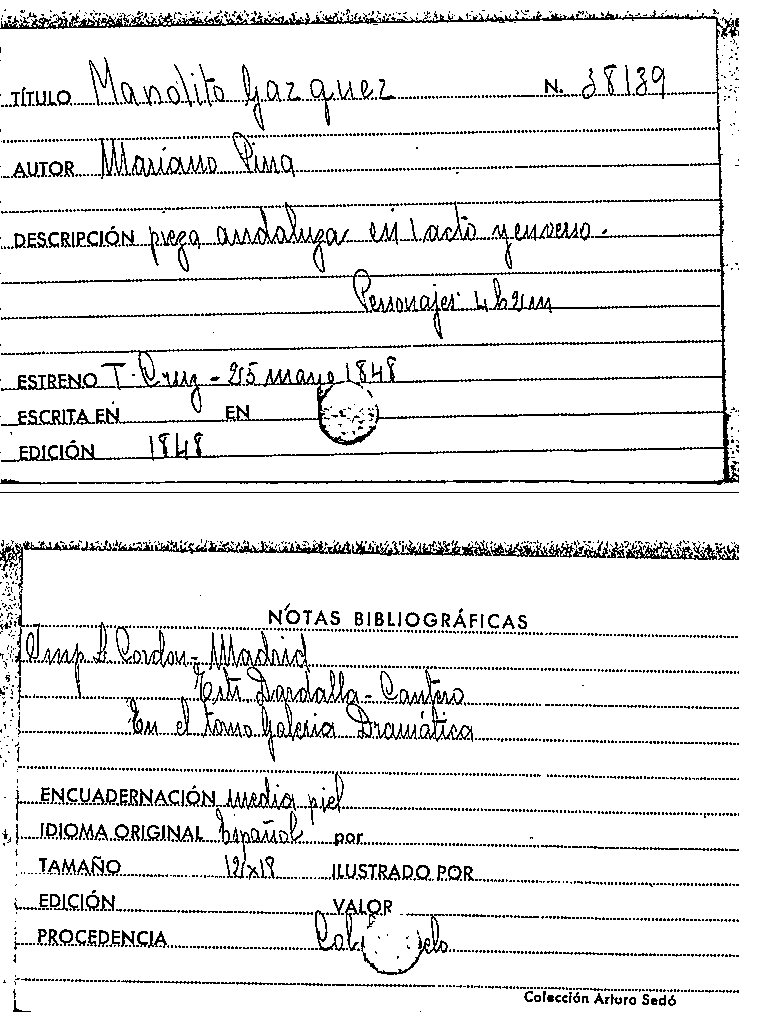 TÍTULO Manolito Gazquez N. 38139
AUTOR Mariano Pina
DESCRIPCIÓN pieza andaluza en 1 acto y en verso.
Personajes: 4h2m
ESTRENO T. Cruz - 25 mayo 1848
ESCRITA EN EN
EDICIÓN 1848
NOTAS BIBLIOGRÁFICAS
Imp Cordon - Madrid
Estr Dardalla - Cantero
En el tomo Galeria Dramática
ENCUADERNACIÓN media piel
IDIOMA ORIGINAL Español por
TAMAÑO 12x18 ILUSTRADO POR
EDICIÓN VALOR
PROCEDENCIA
Colección Arturo Sedó